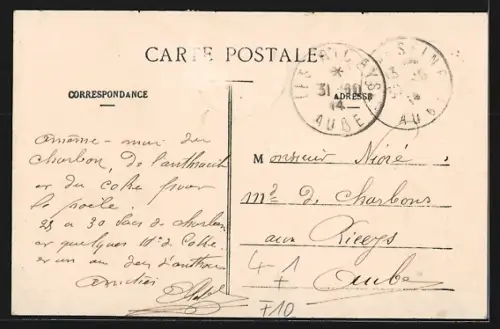 CARTE POSTALE
CORRESPONDANCE
ADRESSE
LES RICEYS
31 -10
14
AUBE
SEINE
AUBE
amène-moi du
charbon, de l'anthracite
et du coke pour
le poêle.
25 à 30 sacs de charbon
et quelques de coke
et un ou deux d'anthracite
Amitiés
Monsieur Nioré
Md de Charbons
aux Riceys
Aube
4
1
F10